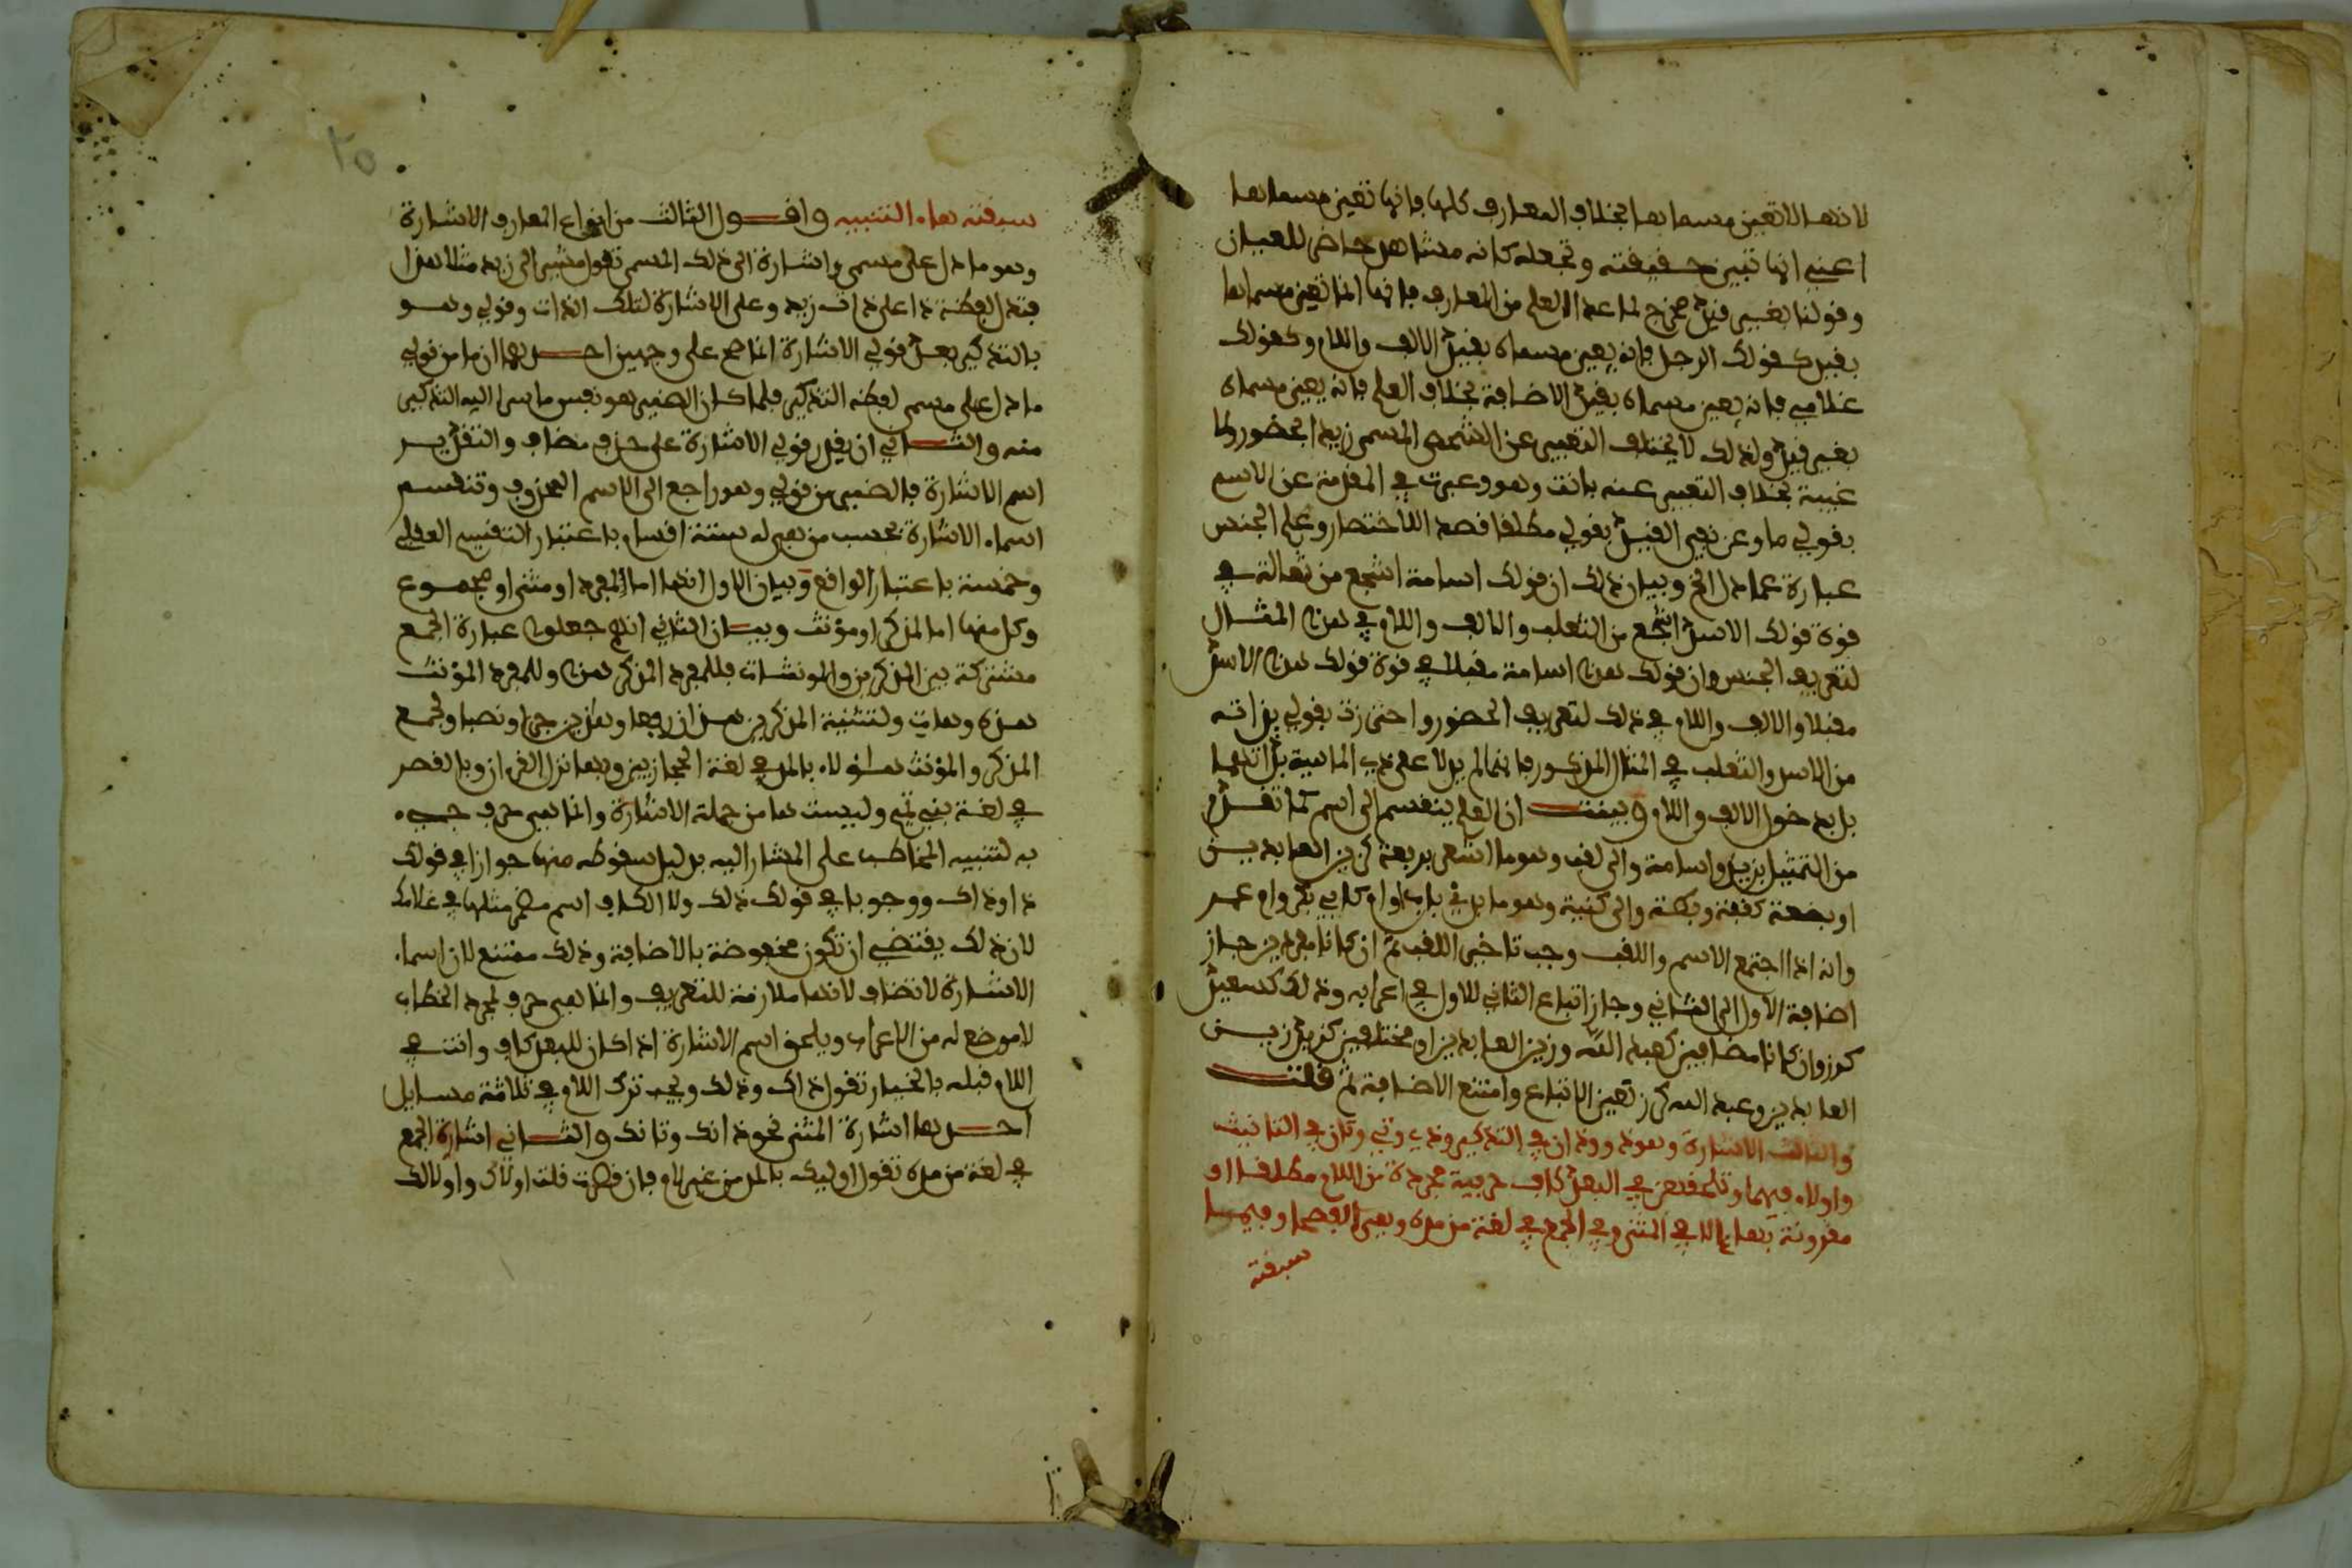 لانها لا تعين مسماها بخلاف المعارف كلها فانها تعين مسماها
اعني انها تبين حقيقته وتجعله كانه مشاهد حاضر للعيان
وقولنا بغير قيد مخرج لما عدا العلم من المعارف فانها انما تعين مسماها
بقيد كقولك الرجل فانه يعين مسماه بقيد الالف واللام وكقولك
غلامي فانه يعين مسماه بقيد الاضافة بخلاف العلم فانه يعين مسماه
بغير قيد ولذلك لا يختلف التعبير عن الشخص المسمى زيدا بحضور ولا
غيبة بخلاف التعبير عنه بانت وهو وعبرت في المقدمة عن الاسم
بقولي ما وعن نفي القيد بقولي مطلقا قصدا للاختصار وعلم الجنس
عبارة عما دل الخ وبيان ذلك ان قولك اسامة اشجع من ثعالة في
قوة قولك الاسد اشجع من الثعلب والالف واللام في هذا المثال
لتعريف الجنس وان قولك هذا اسامة مقبلا في قوة قولك هذا الاسد
مقبلا والالف واللام في ذلك لتعريف الحضور واحترزت بقولي بذاته
من الاسد والثعلب في المثال المذكور فانهما لم يدلا على ذي الماهية بذاتهما
بل بدخول الالف واللام وبينت ان العلم ينقسم الى اسم كما تقدم
من التمثيل بزيد واسامة والى لقب وهو ما اشعر برفعة كزين العابدين
او بضعة كقفة وبطة والى كنية وهو ما بدئ باب او ام كابي بكر وام عمر
وانه اذا اجتمع الاسم واللقب وجب تاخير اللقب ثم ان كانا مفردين جاز
اضافة الاول الى الثاني وجاز اتباع الثاني للاول في اعرابه وذلك كسعيد
كرز وان كانا مضافين كعبد الله وزين العابدين او مختلفين كزيد زين
العابدين وعبد الله كرز تعين الاتباع وامتنع الاضافة ثم قلت
والثالث الاشارة وهو ذا وذان في التذكير وذي وتي وتان في التانيث
واولاء فيهما وتلحقهن في البعد كاف حرفية مجردة من اللام مطلقا او
مقرونة بها الا في المثنى وفي الجمع في لغة من مده وهي الفصحى وفيما
سبقته
سبقته هاء التنبيه واقول الثالث من انواع المعارف الاشارة
وهو ما دل على مسمى واشارة الى ذلك المسمى تقول مشيرا الى زيد مثلا هذا
فتدل لفظة ذا على ذات زيد وعلى الاشارة لتلك الذات وقولي وهو
بالتذكير بعد قولي الاشارة انما صح على وجهين احدهما ان ما من قولي
ما دل على مسمى لفظه التذكير فلما كان الضمير هو نفس ما سرا اليه التذكير
منه والثاني ان يقدر قولي الاشارة على حذف مضاف والتقدير
اسم الاشارة فالضمير من قولي وهو راجع الى الاسم المحذوف وتنقسم
اسماء الاشارة بحسب من هي له ستة اقسام باعتبار التقسيم العقلي
وخمسة باعتبار الواقع وبيان الاول انها اما لمفرد او مثنى او مجموع
وكل منها اما لمذكر او مؤنث وبيان الثاني انهم جعلوا عبارة الجمع
مشتركة بين المذكرين والمونثات فللمفرد المذكر هذا وللمفرد المؤنث
هذه وهاتي ولتثنية المذكرين هذان رفعا وهذين جرا ونصبا ولجمع
المذكر والمؤنث هؤلاء بالمد في لغة الحجازيين وبها نزل القرءان وبالقصر
في لغة بني تميم وليست ها من جملة الاشارة وانما هي حرف جيء
به لتنبيه المخاطب على المشار اليه بدليل سقوطه منها جوازا في قولك
ذا وذاك ووجوبا في قولك ذلك ولا الكاف اسم مضمر مثلها في غلامك
لان ذلك يقتضي ان تكون مخفوضة بالاضافة وذلك ممتنع لان اسماء
الاشارة لا تضاف لانها ملازمة للتعريف وانما هي حرف لمجرد الخطاب
لا موضع له من الاعراب ويلحق اسم الاشارة اذا كان للبعد كاف وانت في
اللام قبله بالخيار تقول ذاك وذلك ويجب ترك اللام في ثلاثة مسايل
احدها اشارة المثنى نحو ذانك وتانك والثاني اشارة الجمع
في لغة من مده تقول اوليك بالمد من غير لام فان قصرت قلت اولاك واولالك